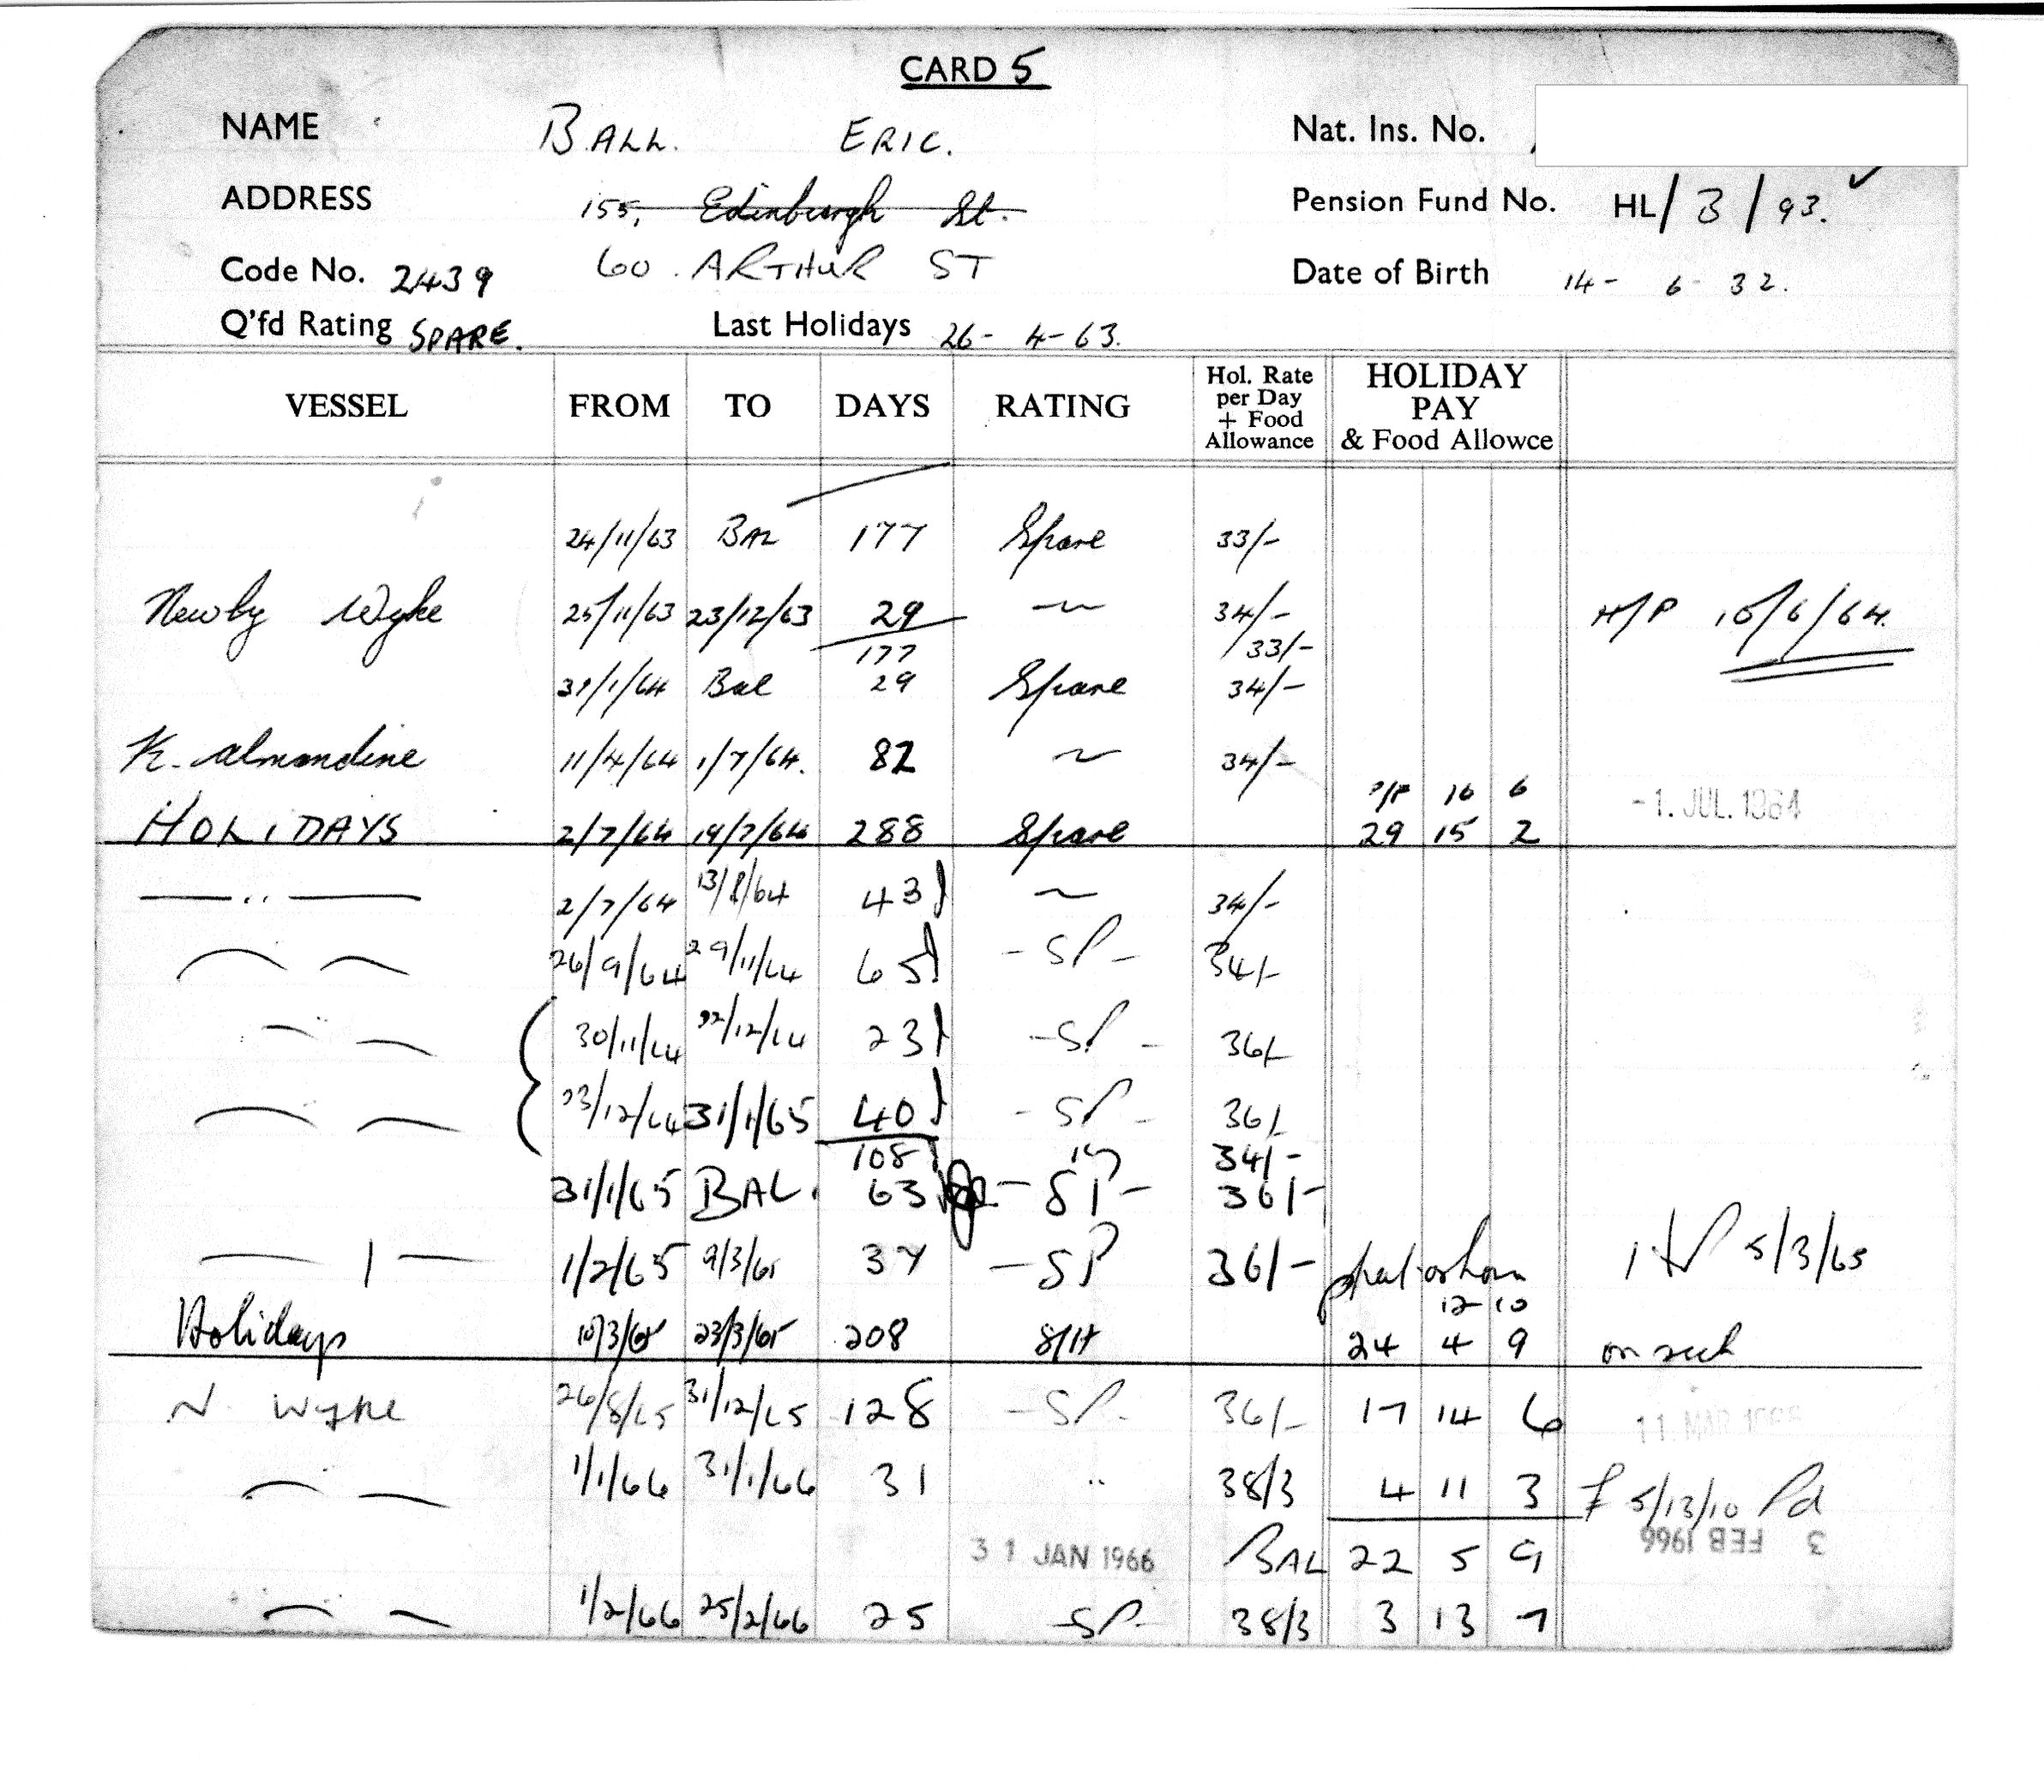 CARD 5
NAME BALL. ERIC. Nat. Ins. No.
ADDRESS 155, Edinburgh St. Pension Fund No. HL/3/93. ✓
Code No. 2439 60. ARTHUR ST Date of Birth 14- 6- 32.
Q'fd Rating SPARE. Last Holidays 26- 4-63.
VESSEL FROM TO DAYS RATING Hol. Rate per Day + Food Allowance HOLIDAY PAY & Food Allowce
24/11/63 BAL 177 Spare 33/-
Newby Wyke 25/11/63 23/12/63 29 ~ 34/- H/P 15/6/64.
177 33/-
31/1/64 Bal 29 Spare 34/-
K. Almandine 11/4/64 1/7/64. 82 ~ 34/-
16 6 -1. JUL. 1964
HOLIDAYS 2/7/64 19/7/64 288 Spare 29 15 2
—— " —— 2/7/64 13/8/64 43 ~ 34/-
26/9/64 29/11/64 65 -SP- 34/-
30/11/64 22/12/64 23 -SP- 36/-
23/12/64 31/1/65 40 -SP- 36/-
108 34/-
31/1/65 BAL. 63 -SP- 36/-
1/2/65 9/3/65 37 -SP 36/- HP 5/3/65
12 10
Holidays 10/3/65 23/3/65 208 24 4 9
N. Wyke 26/8/65 31/12/65 128 -SP- 36/- 17 14 6 11. MAR 1965
1/1/66 31/1/66 31 " 38/3 4 11 3 £ 5/13/10 Pd
31 JAN 1966 BAL 22 5 9 3 FEB 1966
1/2/66 25/2/66 25 -SP- 38/3 3 13 7